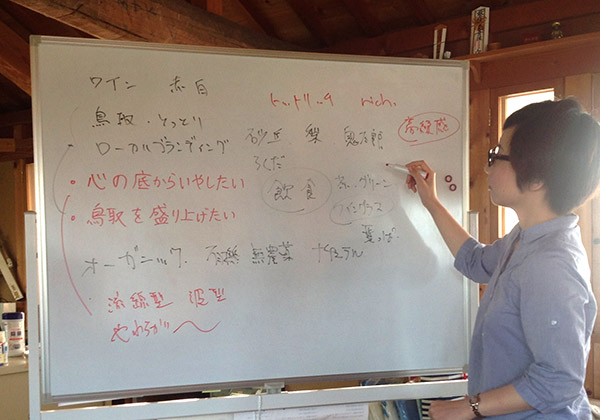 ワイン 赤 白
トットリッチ rich,
鳥取・とっとり
ローカルブランディング
砂丘 梨 鬼太郎
高級感
らくだ
・心の底からいやしたい
飲食
茶、グリーン
ワイングラス
・鳥取を盛り上げたい
葉っぱ
オーガニック、有機 無農薬 ナチュラル
・流線型 波型
やわらかい〜